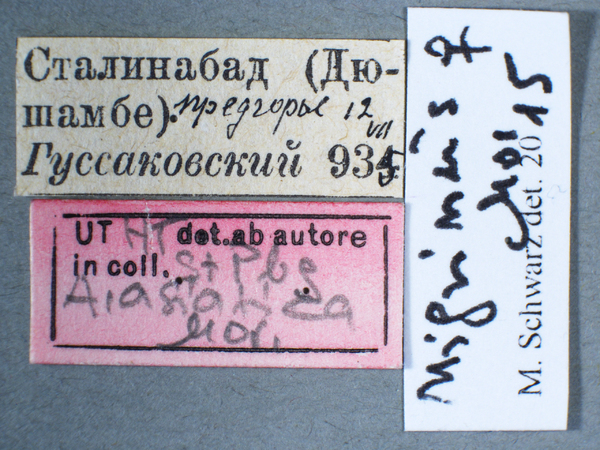 Сталинабад (Дю-
шамбе). предгорье 12 VII
Гуссаковский 935
UT HT det. ab autore
in coll. St Pbg
A. asiatica
Mor.
Nigrinus ♀
Mor.
M. Schwarz det. 2015